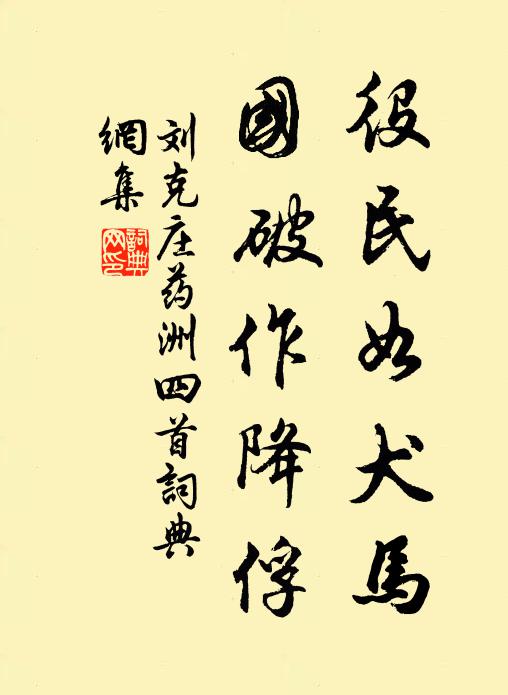 役民如犬馬
國破作降俘
刘克庄药洲四首詞典
網集
詞典
网印